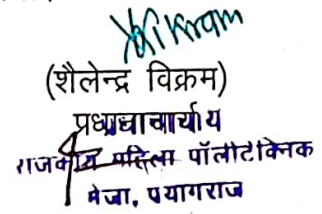 (शैलेन्द्र विक्रम)
प्रधानाचार्य
राजकीय महिला पॉलीटेक्निक
मेजा, प्रयागराज